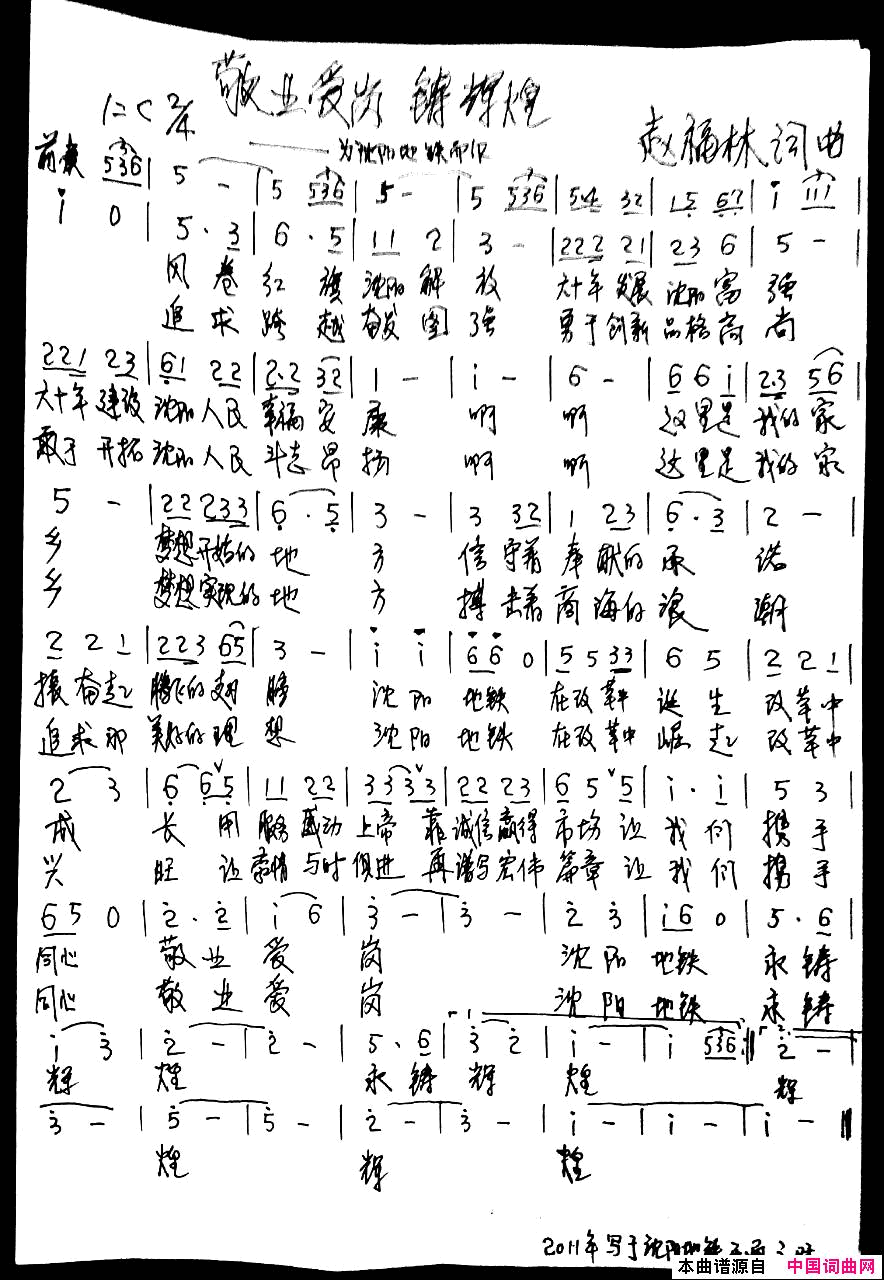 敬业爱岗 铸辉煌
1=C 2/4
——为沈阳地铁而作
赵福林 词曲
前奏 536 | 5 - | 5 536 | 5 - | 5 536 | 5·4 32 | 15 67 | i 111 |
i 0 | 5·3 | 6·5 | 11 2 | 3 - | 222 21 | 23 6 | 5 - |
风卷红旗沈阳解放 六十年发展沈阳富强
追求跨越奋发图强 勇于创新品格高尚
221 23 | 61 22 | 2·2 32 | 1 - | i - | 6 - | 66i | 2·3 56 |
六十年建设沈阳人民幸福安康 啊 啊 这里是我的家
敢于开拓沈阳人民斗志昂扬 啊 啊 这里是我的家
5 - | 22 233 | 6·5 | 3 - | 3 32 | 1 23 | 6·3 | 2 - |
乡 梦想开始的地方 信守着奉献的承诺
乡 梦想实现的地方 搏击着商海的浪潮
2 21 | 223 65 | 3 - | i i | 66 0 | 5 5 33 | 6 5 | 2 21 |
振奋起腾飞的翅膀 沈阳地铁 在改革中诞生 改革中
追求那美好的理想 沈阳地铁 在改革中崛起 改革中
2 3 | 6 65 | 11 22 | 33 33 | 22 23 | 6 5 5 | i·i | 5 3 |
成长 用服务感动上帝 靠诚信赢得市场 让我们携手
兴旺 让豪情与时俱进 再谱写宏伟篇章 让我们携手
65 0 | 2·2 | i 6 | 3 - | 3 - | 2 3 | i6 0 | 5·6 |
同心 敬业爱岗 沈阳地铁 永铸
同心 敬业爱岗 沈阳地铁 永铸
i 3 | 2 - | 2 - | 5·6 | 3 2 | i - | i 536 :|| 2 - |
辉煌 永铸辉煌 辉
3 - | 5 - | 5 - | 2 - | 3 - | i - | i - | i - ||
煌 辉 煌
2011年写于沈阳地铁
本曲谱源自 中国词曲网